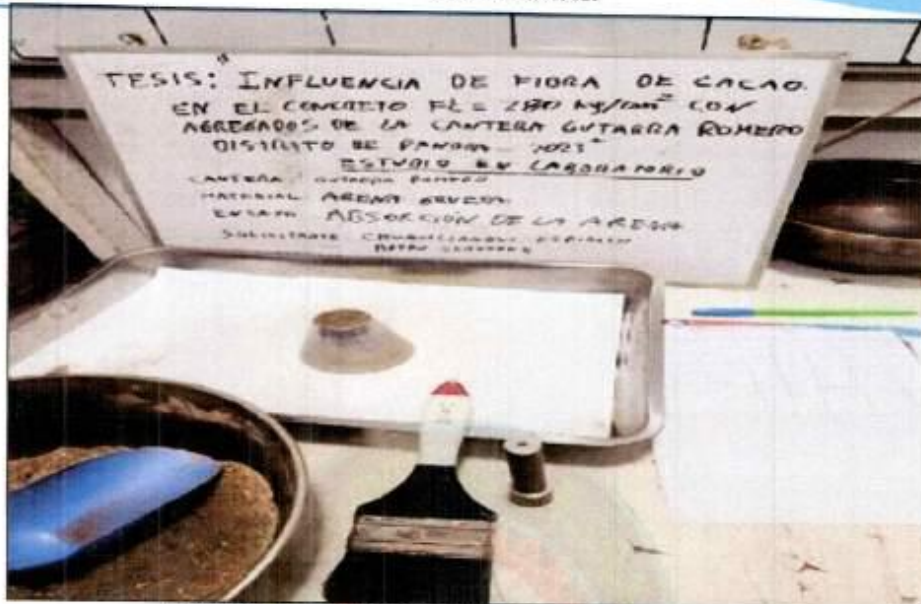 TESIS: "INFLUENCIA DE FIBRA DE CACAO
EN EL CONCRETO F'c = 280 kg/cm² CON
AGREGADOS DE LA CANTERA GUTARRA ROMERO
DISTRITO DE PANGOA - 2023"
ESTUDIO EN LABORATORIO
CANTERA: GUTARRA ROMERO
MATERIAL: ARENA GRUESA
ENSAYO: ABSORCIÓN DE LA ARENA
SOLICITANTE